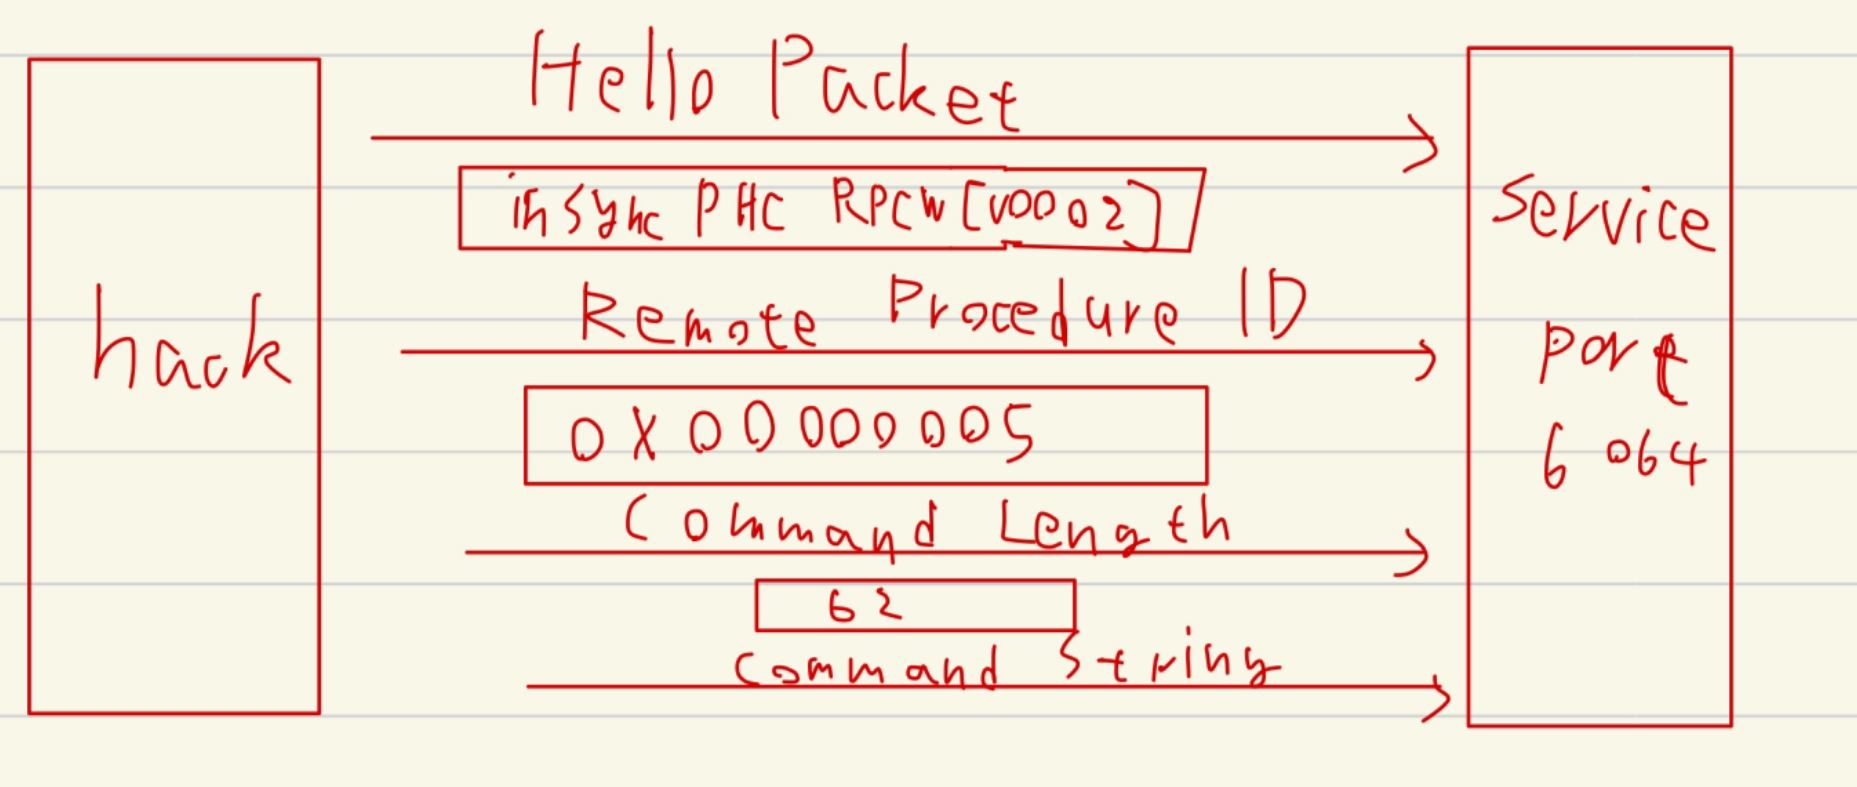 Hello Packet
inSync PHC RPCW[v0002]
Remote Procedure ID
0X00000005
Command Length
62
Command String
hack
Service
port
6064